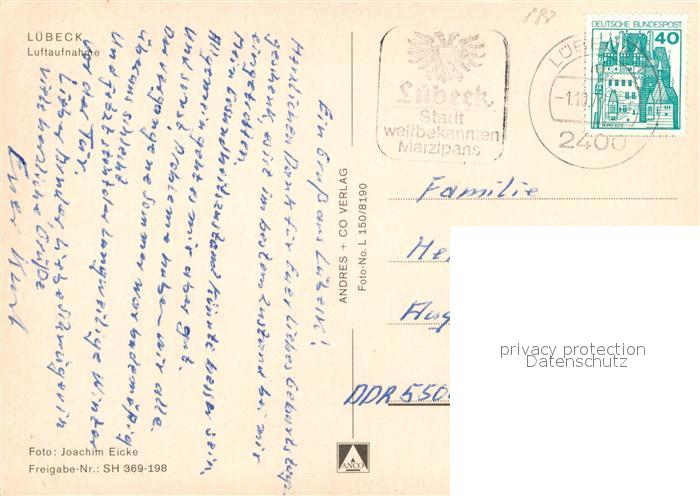 LÜBECK
Luftaufnahme
Ein Gruß aus Lübeck!
Herzlichen Dank für Euer liebes Geburtstags-
geschenk, es ist im besten Zustand bei mir
eingetroffen.
Mein Gesundheitszustand könnte besser sein,
Allgemein geht es mir aber gut.
Und sonst Probleme haben wir alle.
Der vergangene Sommer war bademäßig
überaus schlecht
Und jetzt steht der langweilige Winter
vor der Tür.
Lieber Bruder, liebe Schwägerin
viele herzliche Grüße
Euer Kurt
Foto: Joachim Eicke
Freigabe-Nr.: SH 369-198
ANDRES + CO VERLAG
Foto-No. L 150/8190
ANCO
Lübeck
Stadt
weltbekannten
Marzipans
LÜBE
-1.10.7
2400
DEUTSCHE BUNDESPOST
40
BURG ELTZ
Familie
He
Aug
DDR 550
privacy protection
Datenschutz